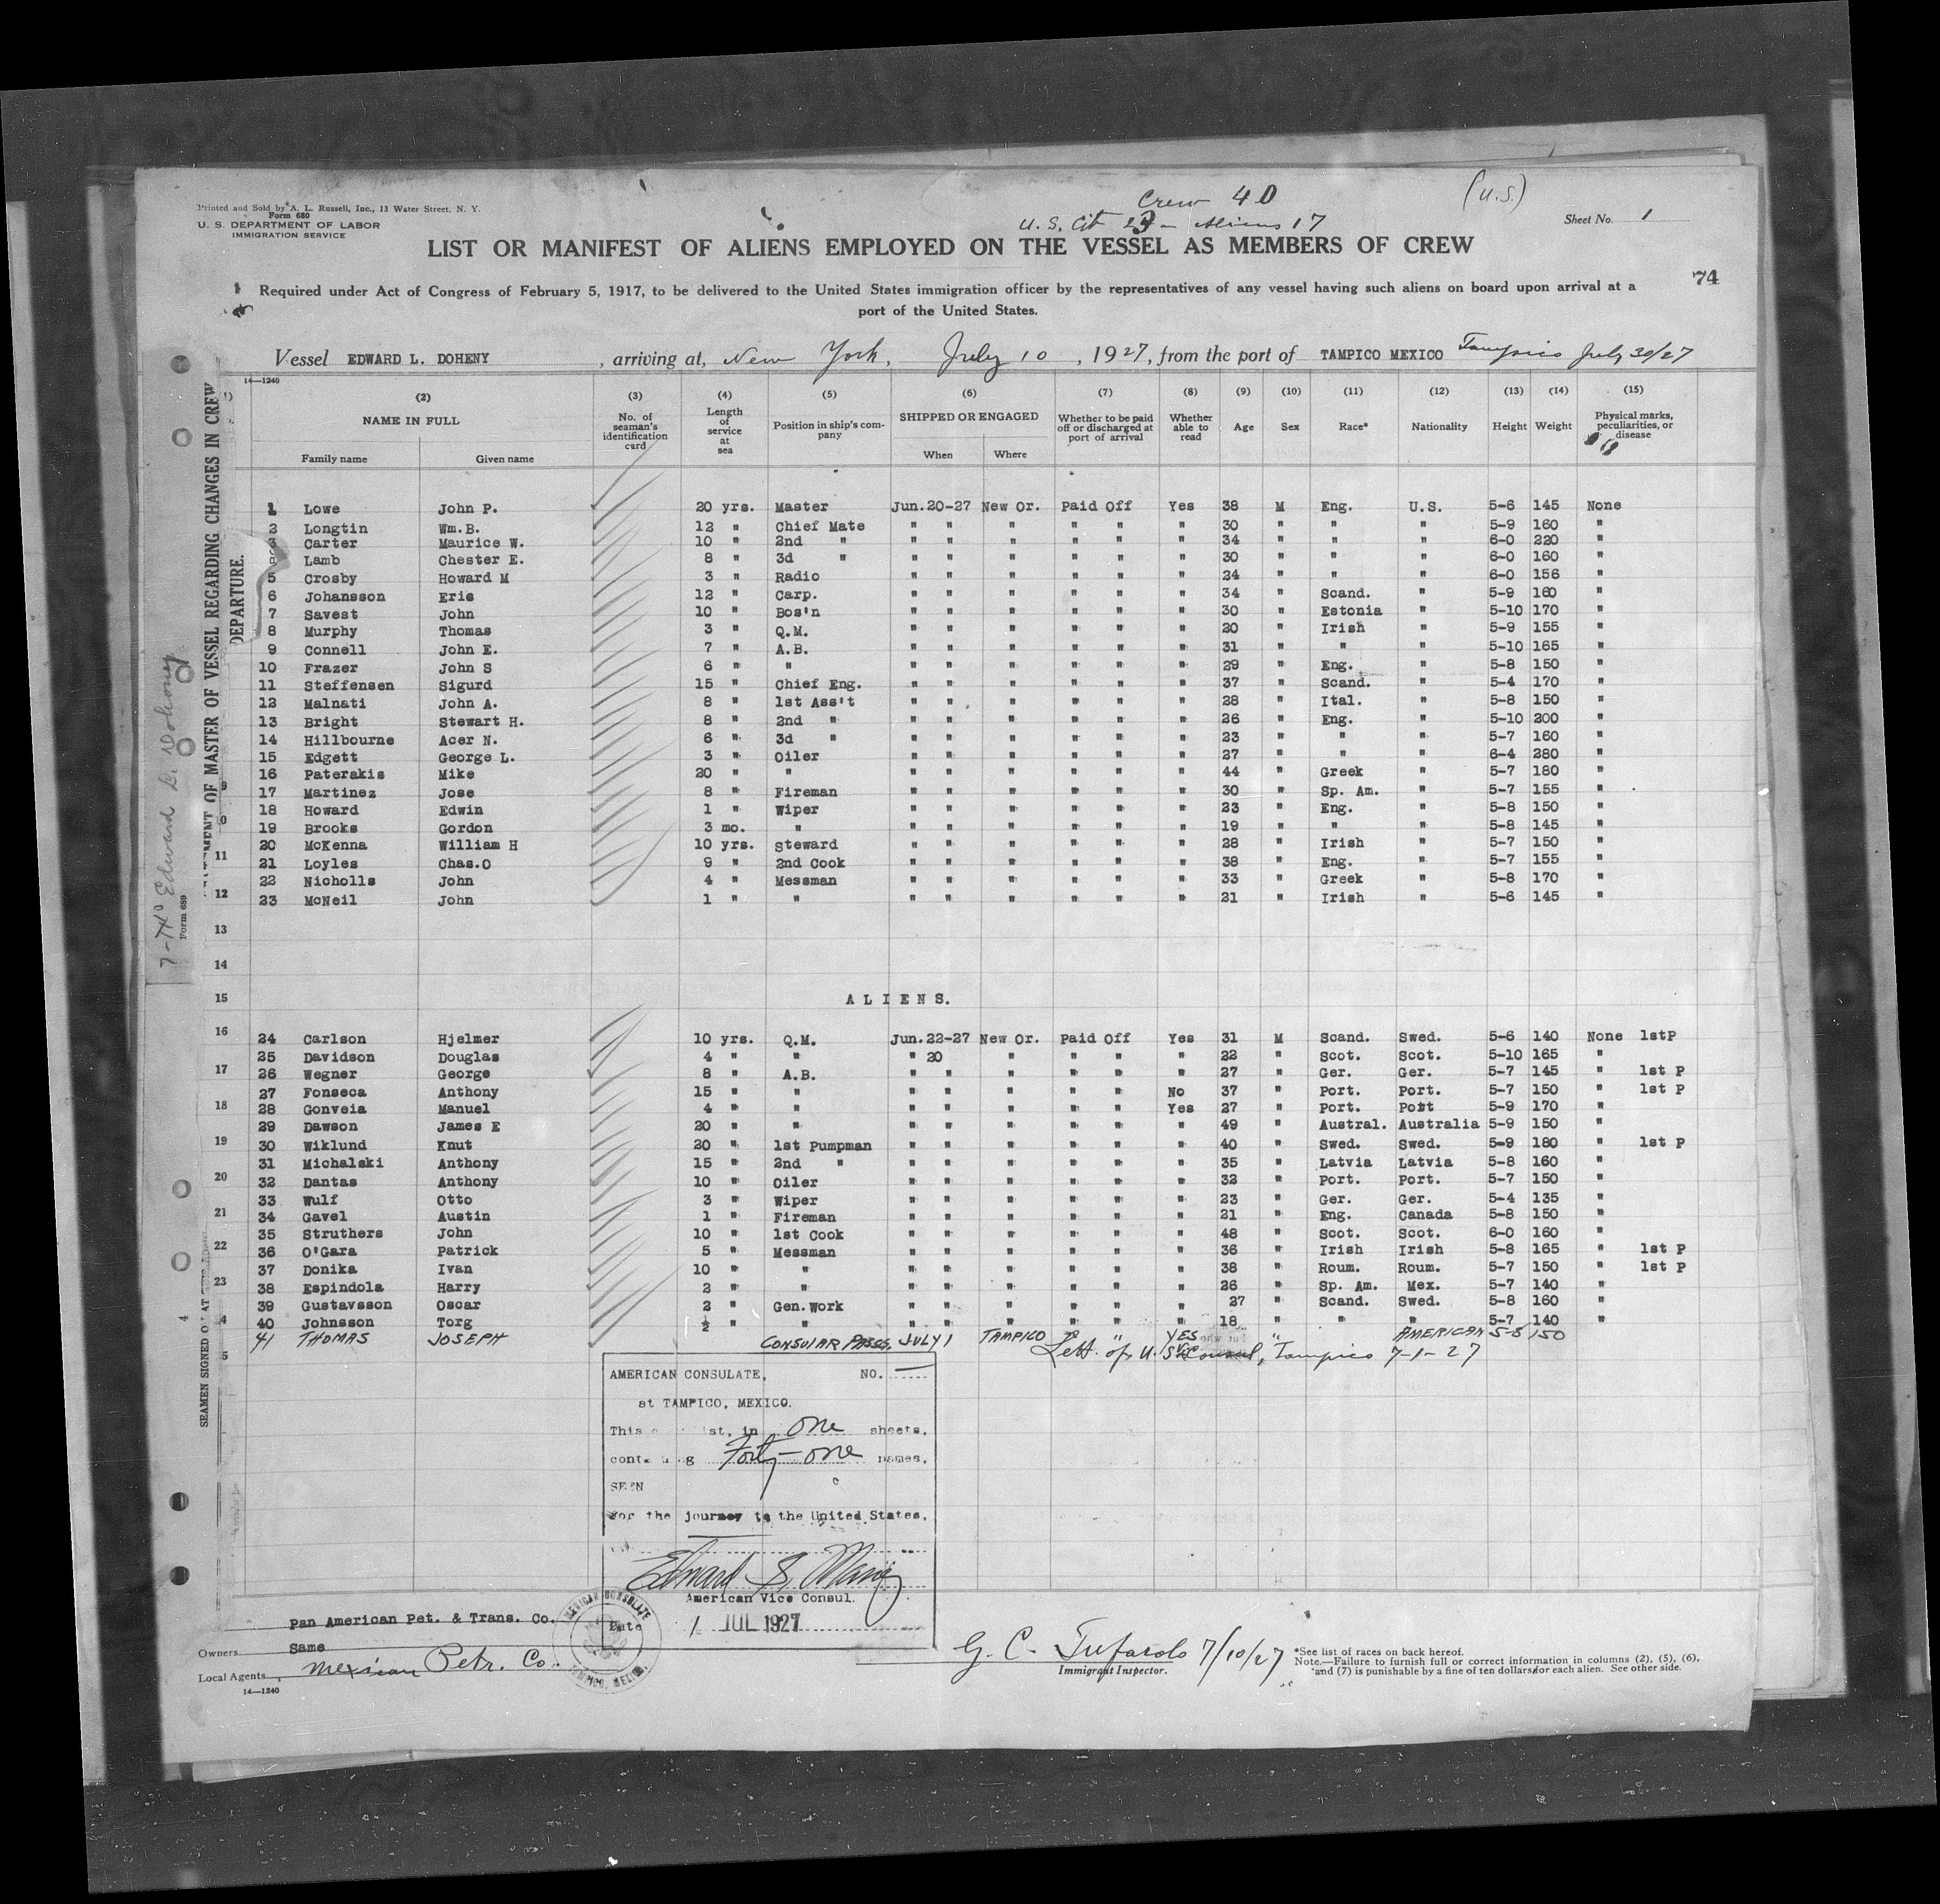 Printed and Sold by A. L. Russell, Inc., 13 Water Street, N. Y.
Form 680
U. S. DEPARTMENT OF LABOR
IMMIGRATION SERVICE
Crew 40
(U.S.)
U. S. Cit 23 - Aliens 17
Sheet No. 1
LIST OR MANIFEST OF ALIENS EMPLOYED ON THE VESSEL AS MEMBERS OF CREW
74
Required under Act of Congress of February 5, 1917, to be delivered to the United States immigration officer by the representatives of any vessel having such aliens on board upon arrival at a
port of the United States.
Vessel EDWARD L. DOHENY, arriving at, New York, July 10, 1927, from the port of TAMPICO MEXICO Tampico July 30/27
14—1240
(2) (3) (4) (5) (6) (7) (8) (9) (10) (11) (12) (13) (14) (15)
NAME IN FULL No. of seaman's identification card Length of service at sea Position in ship's company SHIPPED OR ENGAGED Whether to be paid off or discharged at port of arrival Whether able to read Age Sex Race* Nationality Height Weight Physical marks, peculiarities, or disease
Family name Given name When Where
1 Lowe John P. 20 yrs. Master Jun.20-27 New Or. Paid Off Yes 38 M Eng. U.S. 5-6 145 None
2 Longtin Wm.B. 12 " Chief Mate " " " " " " 30 " " " 5-9 160 "
3 Carter Maurice W. 10 " 2nd " " " " " " " 34 " " " 6-0 220 "
Lamb Chester E. 8 " 3d " " " " " " " 30 " " " 6-0 160 "
5 Crosby Howard M 3 " Radio " " " " " " 24 " " " 6-0 156 "
6 Johansson Eric 12 " Carp. " " " " " " 34 " Scand. " 5-9 160 "
7 Savest John 10 " Bos'n " " " " " " 30 " Estonia " 5-10 170 "
8 Murphy Thomas 3 " Q.M. " " " " " " 20 " Irish " 5-9 155 "
9 Connell John E. 7 " A.B. " " " " " " 31 " " " 5-10 165 "
10 Frazer John S 6 " " " " " " " " 29 " Eng. " 5-8 150 "
11 Steffensen Sigurd 15 " Chief Eng. " " " " " " 37 " Scand. " 5-4 170 "
12 Malnati John A. 8 " 1st Ass't " " " " " " 28 " Ital. " 5-8 150 "
13 Bright Stewart H. 8 " 2nd " " " " " " " 26 " Eng. " 5-10 200 "
14 Hillbourne Acer N. 6 " 3d " " " " " " " 23 " " " 5-7 160 "
15 Edgett George L. 3 " Oiler " " " " " " 27 " " " 6-4 280 "
16 Paterakis Mike 20 " " " " " " " " 44 " Greek " 5-7 180 "
17 Martinez Jose 8 " Fireman " " " " " " 30 " Sp. Am. " 5-7 155 "
18 Howard Edwin 1 " Wiper " " " " " " 23 " Eng. " 5-8 150 "
19 Brooks Gordon 3 mo. " " " " " " " 19 " " " 5-8 145 "
20 McKenna William H 10 yrs. Steward " " " " " " 28 " Irish " 5-7 150 "
21 Loyles Chas.O 9 " 2nd Cook " " " " " " 38 " Eng. " 5-7 155 "
22 Nicholls John 4 " Messman " " " " " " 33 " Greek " 5-8 170 "
23 McNeil John 1 " " " " " " " " 21 " Irish " 5-6 145 "
ALIENS.
24 Carlson Hjelmer 10 yrs. Q.M. Jun.22-27 New Or. Paid Off Yes 31 M Scand. Swed. 5-6 140 None 1stP
25 Davidson Douglas 4 " " " 20 " " " " 22 " Scot. Scot. 5-10 165 "
26 Wegner George 8 " A.B. " " " " " " 27 " Ger. Ger. 5-7 145 " 1st P
27 Fonseca Anthony 15 " " " " " " " No 37 " Port. Port. 5-7 150 " 1st P
28 Gonveia Manuel 4 " " " " " " " Yes 27 " Port. Port 5-9 170 "
29 Dawson James E 20 " " " " " " " " 49 " Austral. Australia 5-9 150 "
30 Wiklund Knut 20 " 1st Pumpman " " " " " " 40 " Swed. Swed. 5-9 180 " 1st P
31 Michalski Anthony 15 " 2nd " " " " " " " 35 " Latvia Latvia 5-8 160 "
32 Dantas Anthony 10 " Oiler " " " " " " 32 " Port. Port. 5-7 150 "
33 Wulf Otto 3 " Wiper " " " " " " 23 " Ger. Ger. 5-4 135 "
34 Gavel Austin 1 " Fireman " " " " " " 21 " Eng. Canada 5-8 150 "
35 Struthers John 10 " 1st Cook " " " " " " 48 " Scot. Scot. 6-0 160 "
36 O'Gara Patrick 5 " Messman " " " " " " 36 " Irish Irish 5-8 165 " 1st P
37 Donika Ivan 10 " " " " " " " " 38 " Roum. Roum. 5-7 150 " 1st P
38 Espindola Harry 2 " " " " " " " " 26 " Sp. Am. Mex. 5-7 140 "
39 Gustavsson Oscar 2 " Gen.Work " " " " " " 27 " Scand. Swed. 5-8 160 "
40 Johnsson Torg ½ " " " " " " " " 18 " " " 5-7 140 "
41 THOMAS JOSEPH CONSULAR PASSG. JULY 1 TAMPICO " YES " AMERICAN 5-8 150
Lett. of U.S. Consul, Tampico 7-1-27
AMERICAN CONSULATE, NO.
at TAMPICO, MEXICO.
This st, in One sheets,
containing Forty-one names,
SEEN
For the journey to the United States,
American Vice Consul.
Date 1 JUL 1927
AMERICAN CONSULATE
TAMPICO, MEXICO.
Pan American Pet. & Trans. Co.
Owners Same
Local Agents, Mexican Petr. Co.
14—1240
G. C. Tufarolo 7/10/27
Immigrant Inspector.
*See list of races on back hereof.
Note.—Failure to furnish full or correct information in columns (2), (5), (6),
and (7) is punishable by a fine of ten dollars for each alien. See other side.
OF MASTER OF VESSEL REGARDING CHANGES IN CREW
DEPARTURE.
Edward L. Doheny
Form 689
SEAMEN SIGNED O
11
12
13
14
15
16
17
18
19
20
21
22
23